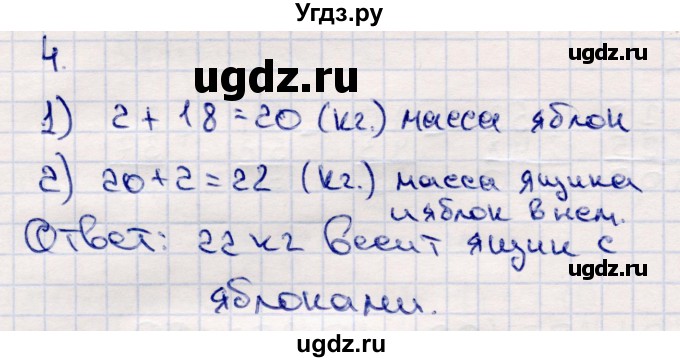 Угдз.ру
4.
ugdz.ru
1) 2 + 18 = 20 (кг.) масса яблок
2) 20 + 2 = 22 (кг.) масса ящика
и яблок в нем.
Ответ: 22 кг весит ящик с
яблоками.
ugdz.ru
ugdz.ru